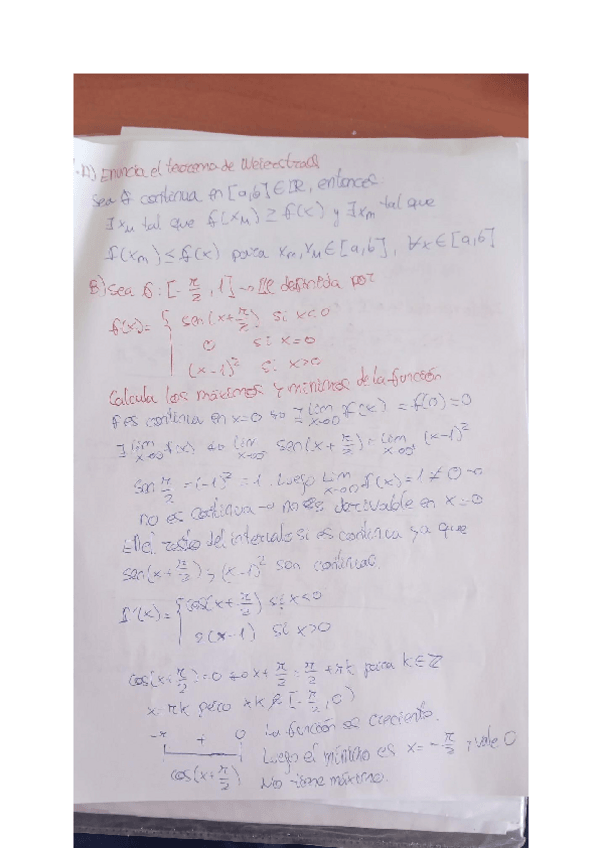 A) Enuncia el teorema de Weierstrass
Sea f continua en [a,b] ∈ ℝ, entonces
∃ x_M tal que f(x_M) ≥ f(x) y ∃ x_m tal que
f(x_m) ≤ f(x) para x_m, x_M ∈ [a,b], ∀x ∈ [a,b]
B) Sea f: [-π/2, 1] → ℝ definida por
f(x) = { sen(x+π/2) si x<0
0 si x=0
(x-1)² si x>0
Calcula los máximos y mínimos de la función
f es continua en x=0 ⇔ ∃ lim x→0 f(x) = f(0) = 0
∃ lim x→0 f(x) ⇔ lim x→0⁻ sen(x+π/2) = lim x→0⁺ (x-1)²
sen π/2 = (-1)² = 1. Luego lim x→0 f(x) = 1 ≠ 0 →
no es continua → no es derivable en x=0
En el resto del intervalo si es continua ya que
sen(x+π/2) y (x-1)² son continuas.
f'(x) = { cos(x+π/2) si x<0
2(x-1) si x>0
cos(x+π/2) = 0 ⇔ x+π/2 = π/2 + πk para k∈ℤ
x=πk pero πk ∉ [-π/2, 0)
-π + 0 la función es creciente.
Luego el mínimo es x=-π/2 y vale 0
cos(x+π/2) No tiene máximo.